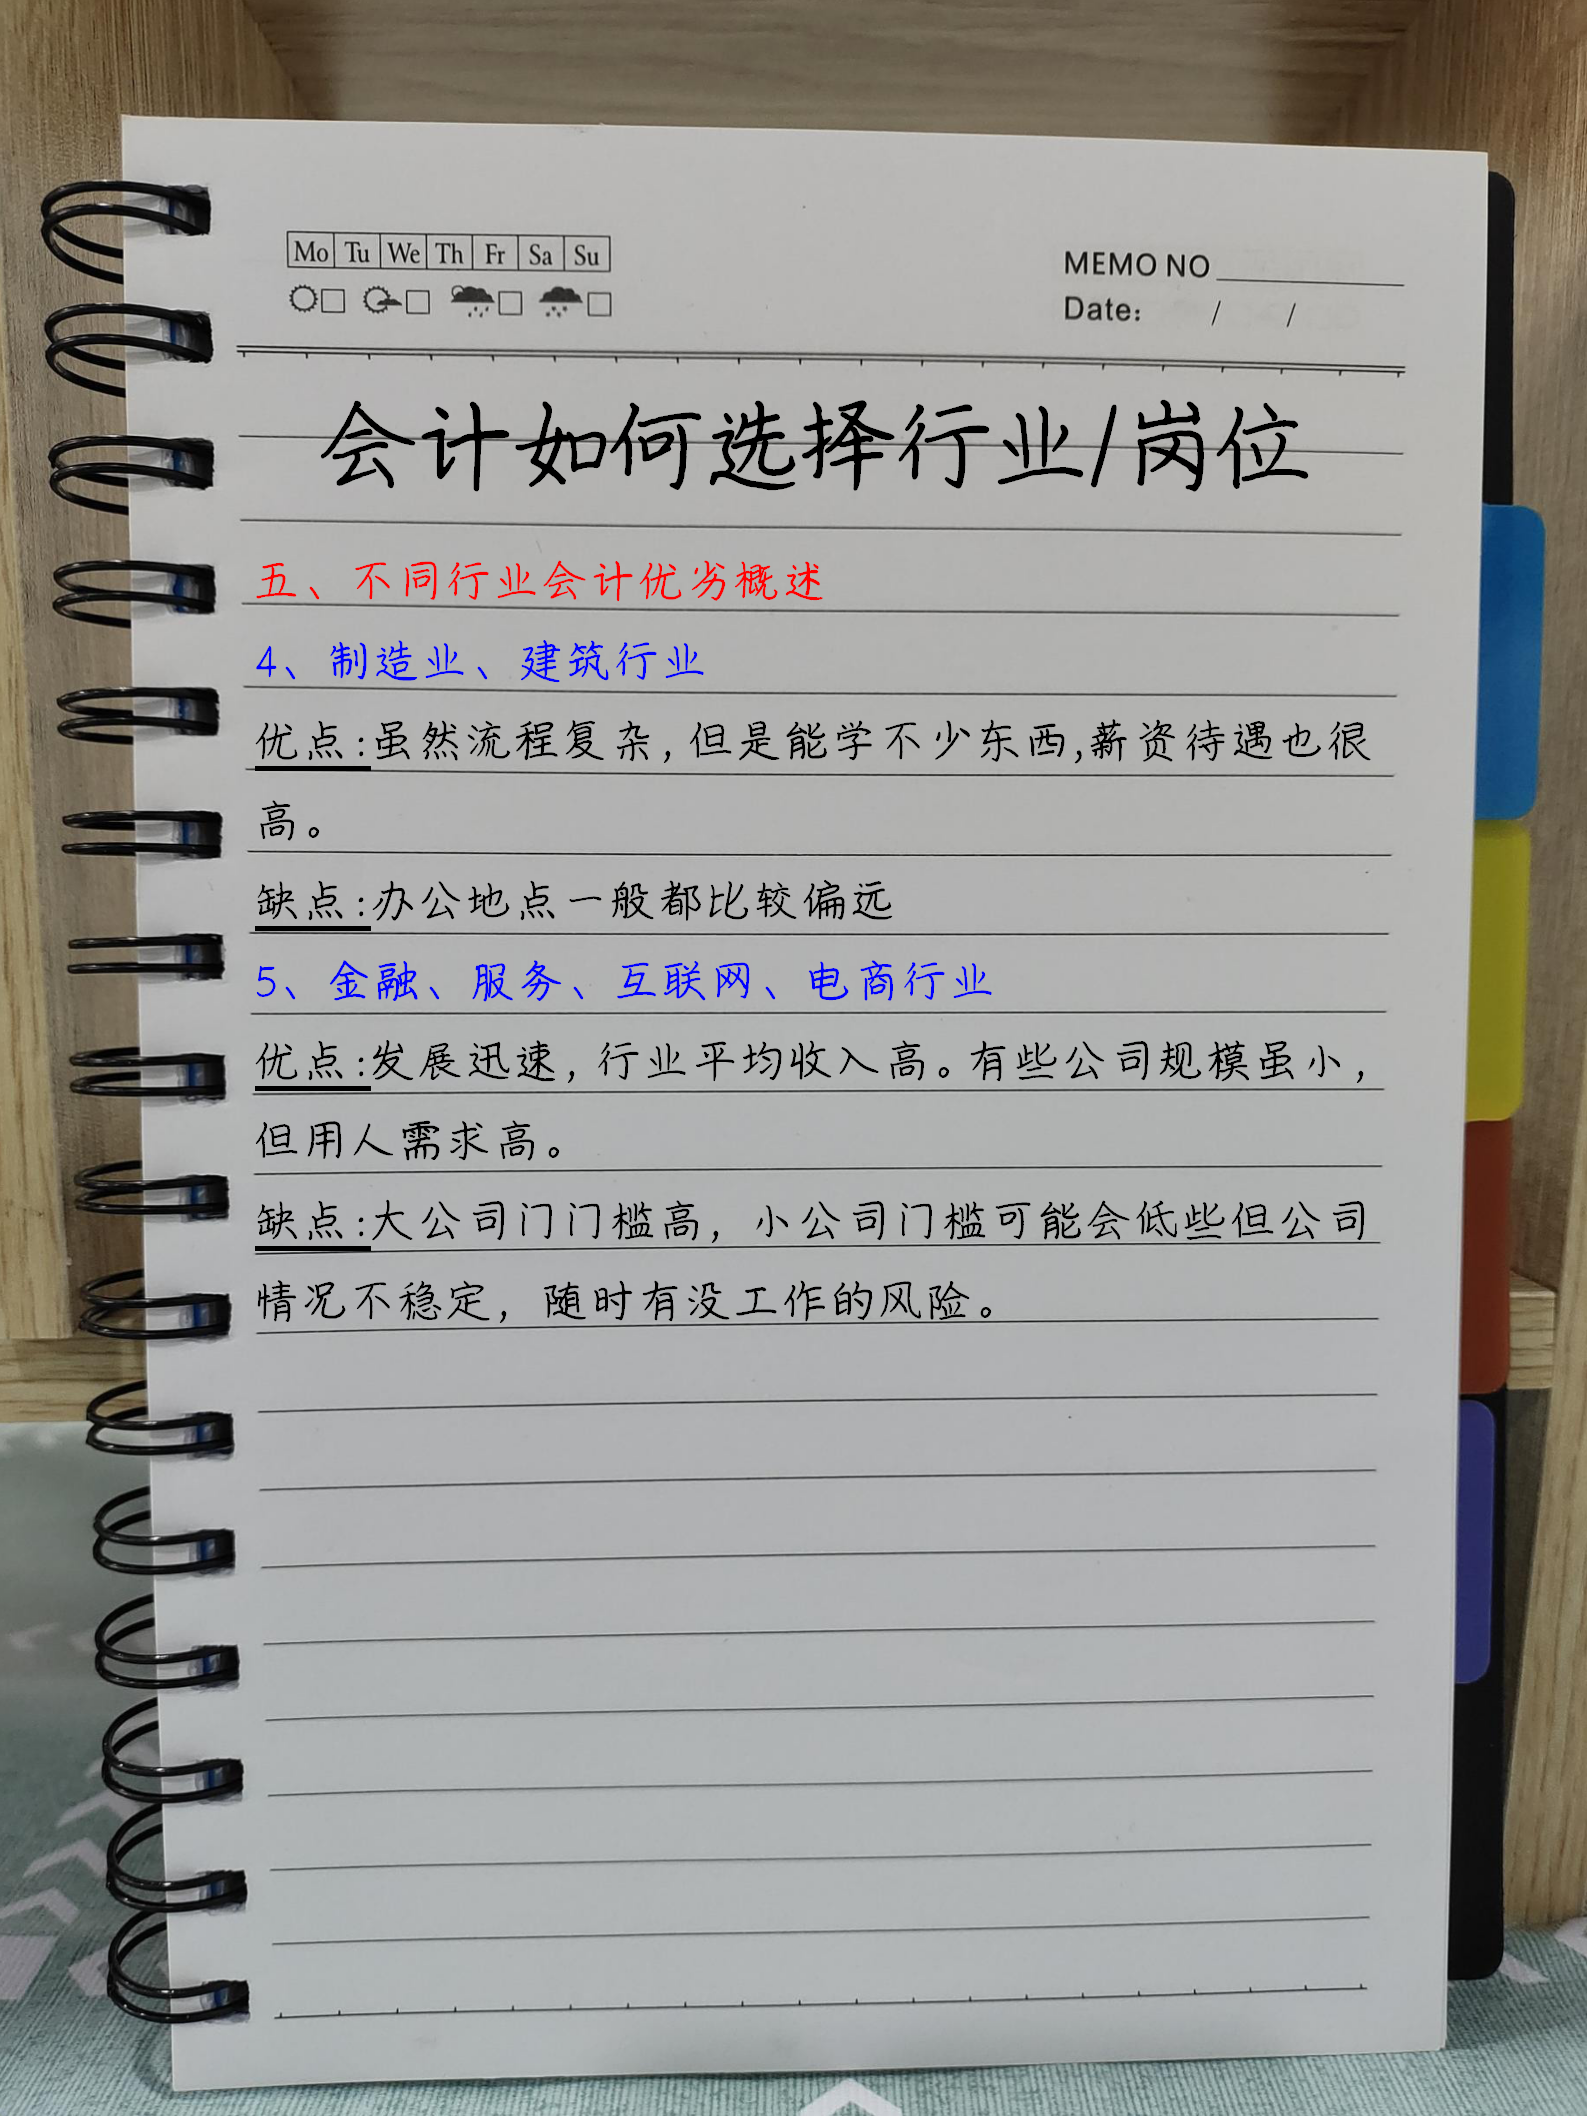 Mo Tu We Th Fr Sa Su
MEMO NO
Date: / /
会计如何选择行业/岗位
五、不同行业会计优劣概述
4、制造业、建筑行业
优点:虽然流程复杂,但是能学不少东西,薪资待遇也很
高。
缺点:办公地点一般都比较偏远
5、金融、服务、互联网、电商行业
优点:发展迅速,行业平均收入高。有些公司规模虽小,
但用人需求高。
缺点:大公司门门槛高,小公司门槛可能会低些但公司
情况不稳定,随时有没工作的风险。